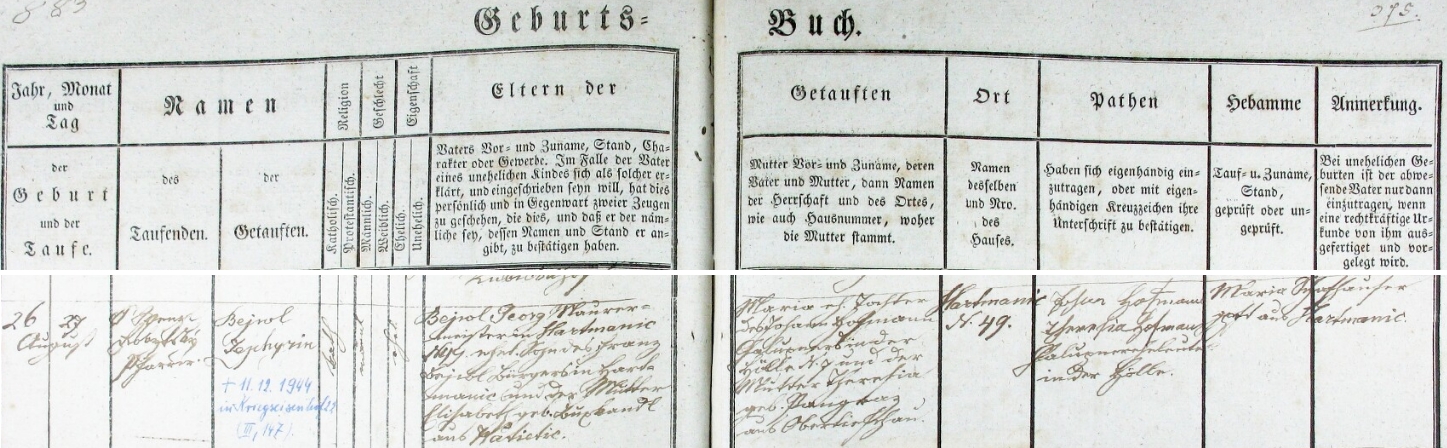 883
075.
Geburts=
Buch.
Jahr, Monat
und
Tag
der
Geburt
und der
Taufe.
Namen
des
Taufenden.
der
Getauften.
Religion
Katholisch.
Protestantisch.
Geschlecht
Männlich.
Weiblich.
Eigenschaft
Ehelich.
Unehelich.
Eltern der
Vaters Vor- und Zuname, Stand, Cha-
rakter oder Gewerbe. Im Falle der Vater
eines unehelichen Kindes sich als solcher er-
klärt, und eingeschrieben seyn will, hat dies
persönlich und in Gegenwart zweier Zeugen
zu geschehen, die dies, und daß er der näm-
liche sey, dessen Namen und Stand er an-
gibt, zu bestätigen haben.
Getauften
Mutter Vor- und Zuname, deren
Vater und Mutter, dann Namen
der Herrschaft und des Ortes,
wie auch Hausnummer, woher
die Mutter stammt.
Ort
Namen
desselben
und Nro.
des
Hauses.
Pathen
Haben sich eigenhändig ein-
zutragen, oder mit eigen-
händigen Kreuzzeichen ihre
Unterschrift zu bestätigen.
Hebamme
Tauf- u. Zuname,
Stand,
geprüft oder un-
geprüft.
Anmerkung.
Bei unehelichen Ge-
burten ist der abwe-
sende Vater nur dann
einzutragen, wenn
eine rechtkräftige Ur-
kunde von ihm aus-
gefertiget und vor-
gelegt wird.
26 27
August
Pfarrer
Bejwl
Zephyrin
+ 11.12.1944
(VI, 147).
kath
männl
ehel
Bejwl Georg Maurer-
meister in Hartmanic
N. 49, ehel. Sohn des Franz
Bejwl Bürgers in Hart-
manic und der Mutter
Elisabeth geb.
aus
Maria eh. Tochter
des Johann Hofmann
Chalupners in der
Hölle N. 7 und der
Mutter Theresia
geb. Pangraz
aus
Hartmanic
N. 49.
Johann Hofmann
Theresia Hofmann
Chalupnerseheleute
in der Hölle.
Maria
aus Hartmanic.